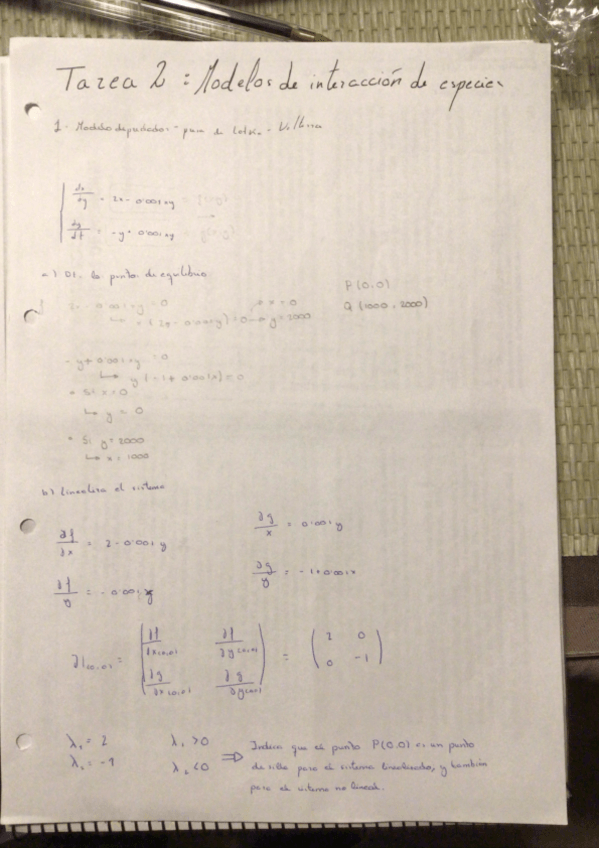 Tarea 2 : Modelos de interacción de especies
1- Modelo depredador - presa de Lotka - Volterra
dx/dy = 2x - 0'001xy
dy/dt = -y + 0'001xy
a) los puntos de equilibrio
2x - 0'001xy = 0 → x = 0 P(0,0)
y = 2000 Q(1000, 2000)
-y + 0'001xy = 0
↳ y(-1 + 0'001x) = 0
* Si x = 0
↳ y = 0
* Si y = 2000
↳ x = 1000
b) Linealiza el sistema
∂f/∂x = 2 - 0'001y ∂g/x = 0'001y
∂f/y = -0'001x ∂g/y = -1 + 0'001x
J|(0,0) = (∂f/∂x(0,0) ∂f/∂y(0,0) ∂g/∂x(0,0) ∂g/∂y(0,0)) = (2 0 0 -1)
λ₁ = 2 λ₁ > 0 ⇒ Indica que el punto P(0,0) es un punto
λ₂ = -1 λ₂ < 0 de silla para el sistema linealizado, y también
para el sistema no lineal.